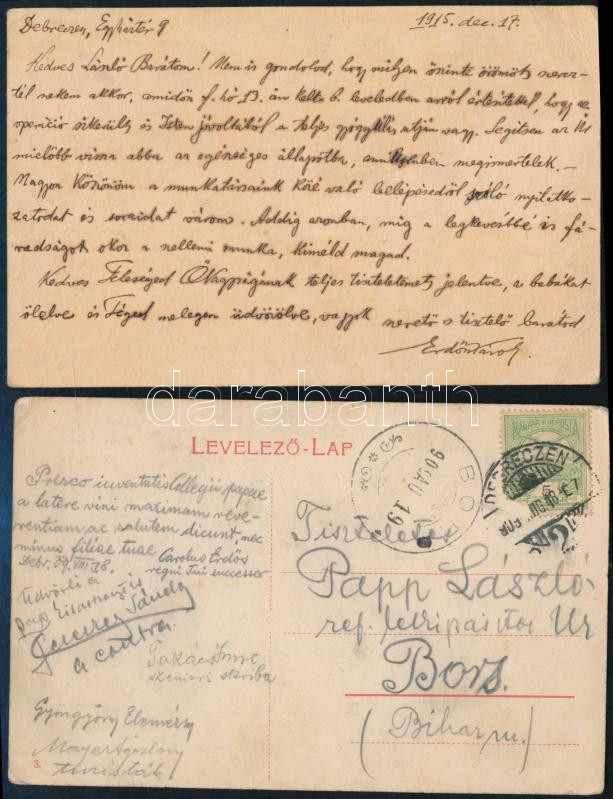 Debreczen, Egyháztér 9
1915. dec. 17.
Kedves László Barátom! Nem is gondolod, hogy milyen őszinte örömöt szerez-
tél nekem akkor, amidőn f. hó 13. án kelt b. leveledben arról értesítettél, hogy az
operáció sikerült és Isten jóvoltából a teljes gyógyulás utján vagy. Segitsen az Ur
mielőbb vissza abba az egészséges állapotba, amilyenben megismertelek. –
Nagyon köszönöm a munkatársaink közé való belépésedről szóló nyilatko-
zatodat és soraidat várom. Addig azonban, mig a legkevésbbé is fá-
radságot okoz a szellemi munka, kiméld magad.
Kedves Feleséged Őnagyságának teljes tiszteletemet jelentve, a babákat
ölelve és Téged melegen üdvözölve, vagyok szerető s tisztelő barátod
Erdős Károly
darabanth
LEVELEZŐ-LAP
MAGYAR KIR. POSTA
DEBRECZEN
BOR
Prisco iuventutis Collegii papae
a latere vini maximam reve-
rentiam ac salutem dicunt, nec
minus filiae tuae Carolus Erdős
Debr. 09. VIII 18. regni Tui successor
Üdvözli a
Pap Elzarhanyt is
Sándor
a contra.
Takács Imre
szeniori skriba
Gyöngyösy Elemér
Mayer Ágoston
turisták
3.
Tiszteletes
Papp László
ref. lelkipásztor Ur
Bors.
(Bihar m.)